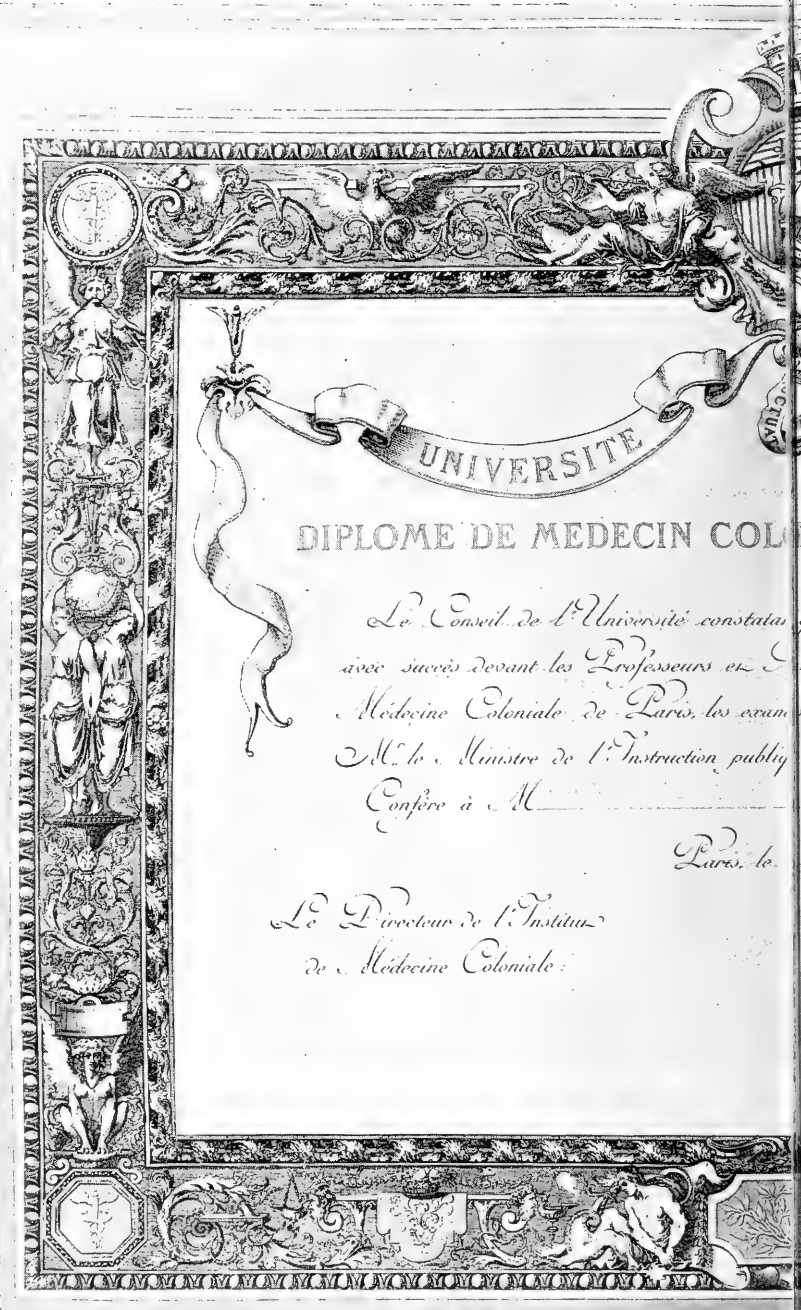 CTUAT
UNIVERSITE
DIPLOME DE MEDECIN COLO
Le Conseil de l'Université constata
avec succès devant les Professeurs et
Médecine Coloniale de Paris, les exam
Mr. le Ministre de l'Instruction publiq
Confère à M
Paris, le
Le Directeur de l'Institut
de Médecine Coloniale :